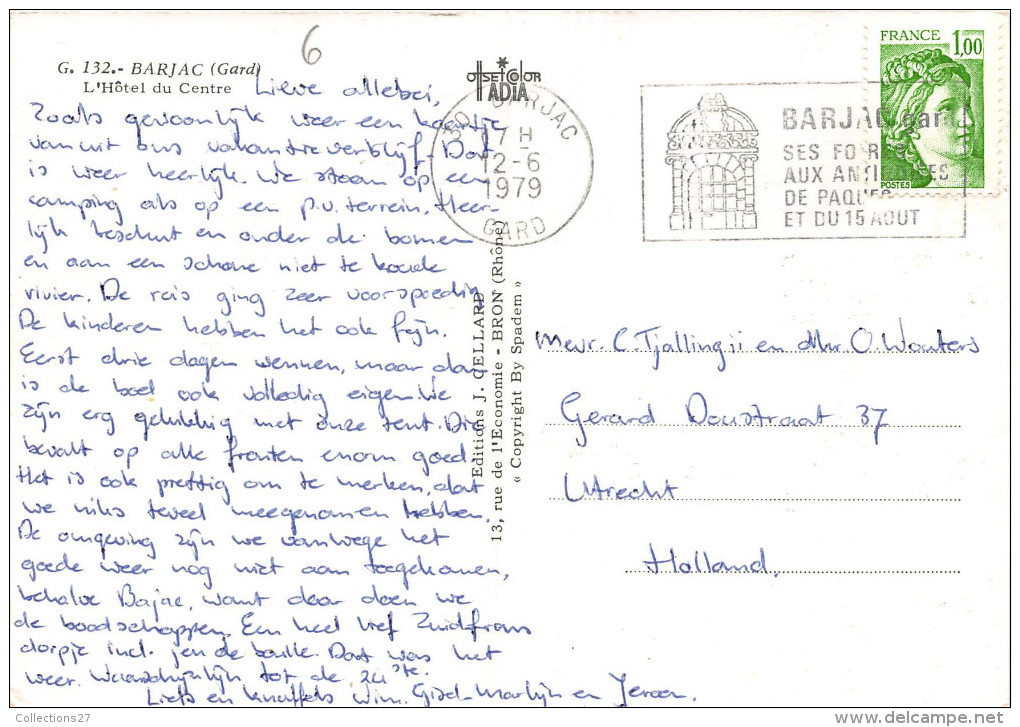 6
G. 132.- BARJAC (Gard)
L'Hôtel du Centre
Lieve allebei,
Zoals gewoonlijk weer een kaartje
vanuit ons vakantieverblijf. Dat
is weer heerlijk. We staan op een
camping als op een p.v. terrein. Heer-
lijk beschut en onder de bomen
en aan een schone niet te koude
rivier. De reis ging zeer voorspoedig
De kinderen hebben het ook fijn.
Eerst drie dagen wennen, maar dan
is de boel ook volledig eigen. We
zijn erg gelukkig met onze tent. Die
bevalt op alle fronten enorm goed.
Het is ook prettig om te merken, dat
we niks teveel meegenomen hebben.
De omgeving zijn we vanwege het
goede weer nog niet aan toegekomen,
behalve Bajac, want daar doen we
de boodschappen. Een heel lief Zuidfrans
dorpje incl. jeu de boulle. Dat was het
weer. Waarschijnlijk tot de 24ste.
Liefs en knuffels Wim, Gisel-Marlijn en Jeroen.
OFFSET COLOR
ADIA
Editions J. CELLARD
13, rue de l'Economie - BRON (Rhône)
« Copyright By Spadem »
30 BARJAC
17 H
12-6
1979
GARD
BARJAC Gard
SES FOIRES
AUX ANTIQUITES
DE PAQUES
ET DU 15 AOUT
FRANCE 1,00
POSTES
Mevr. C. Tjallingii en Mhr. O. Wouters
Gerard Doustraat 37
Utrecht
Holland.
Collections27